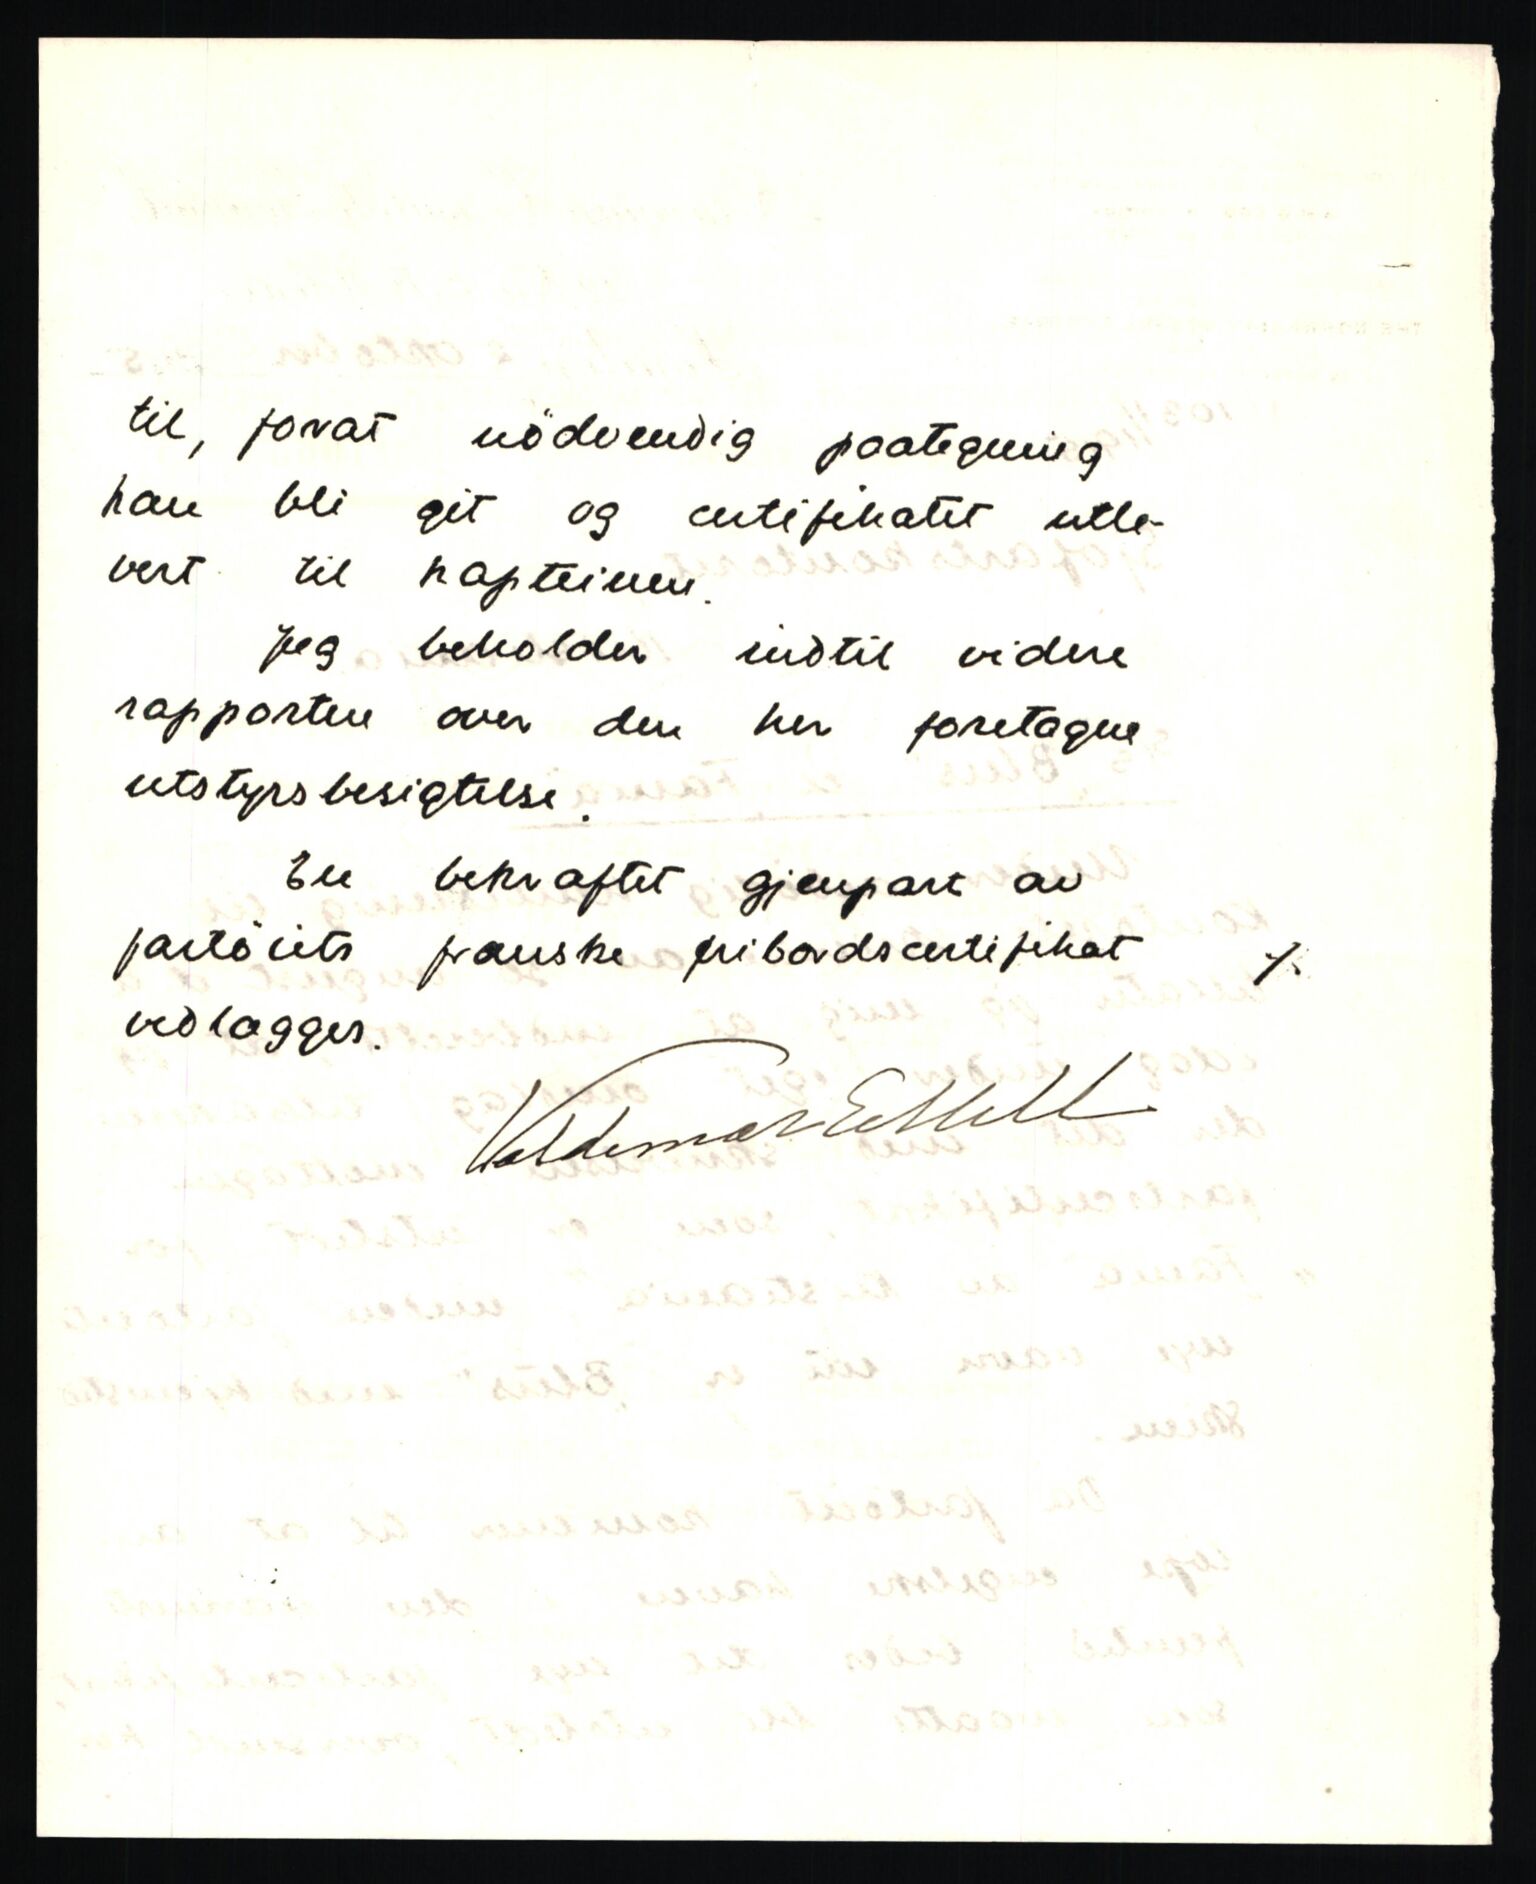 til, forat nödvendig paategning
kan bli git og certifikatet utle-
vert til kapteinen.
Jeg beholder indtil videre
rapporten over den her foretagne
utstyrsbesigtelse.
En bekraftet gjenpart av
fartöiets franske fribordscertifikat ./.
vedlægges.
Valdemar